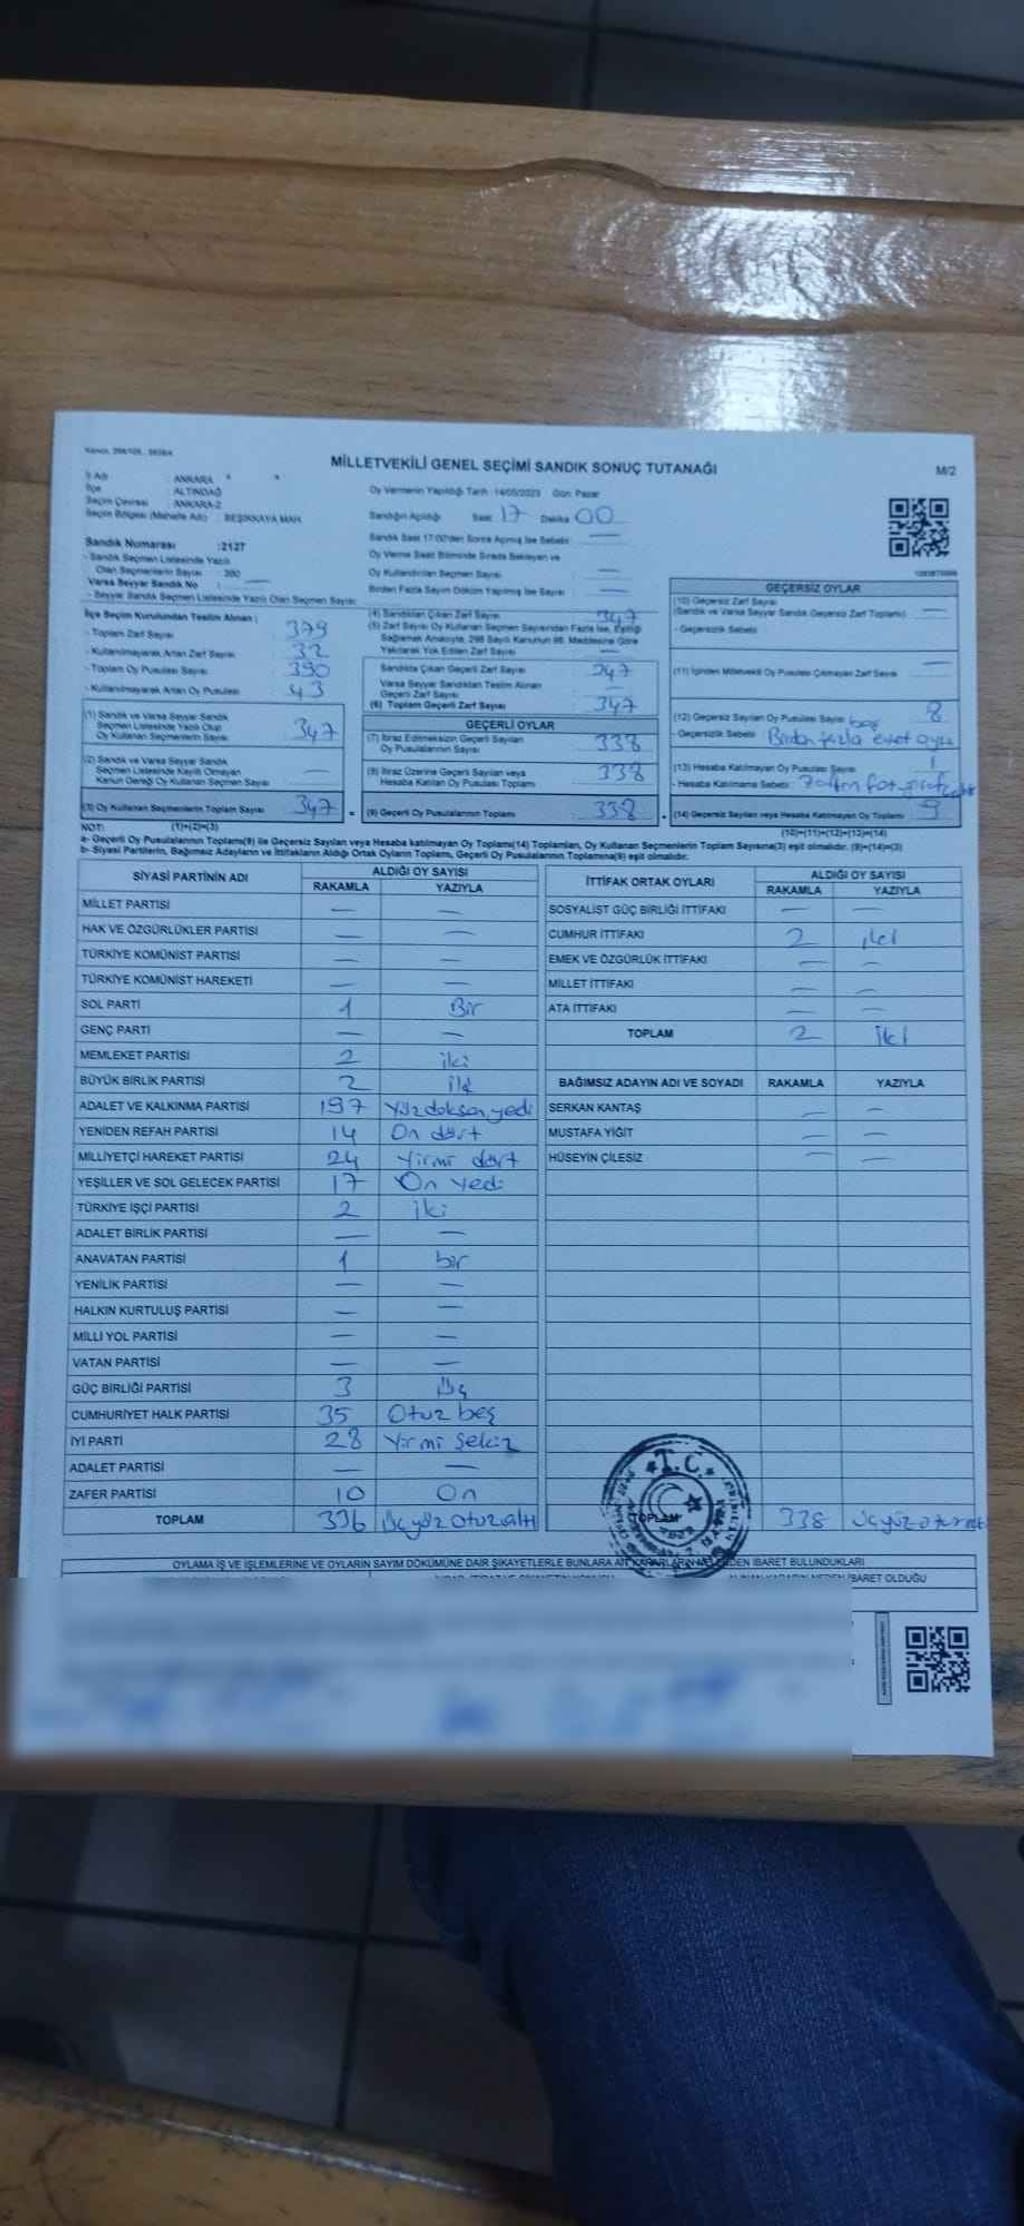 MİLLETVEKİLİ GENEL SEÇİMİ SANDIK SONUÇ TUTANAĞI
M/2
İl Adı : ANKARA
İlçe : ALTINDAĞ
Seçim Çevresi : ANKARA-2
Seçim Bölgesi (Mahalle Adı) : BEŞİKKAYA MAH.
Sandık Numarası :2127
- Sandık Seçmen Listesinde Yazılı
Olan Seçmenlerin Sayısı : 380
Varsa Seyyar Sandık No : —
- Seyyar Sandık Seçmen Listesinde Yazılı Olan Seçmen Sayısı
Oy Vermenin Yapıldığı Tarih : 14/05/2023 Gün: Pazar
Sandığın Açıldığı Saat: 17 Dakika 00
Sandık Saat 17:00'den Sonra Açılmış İse Sebebi —
Oy Verme Saati Bitiminde Sırada Bekleyen ve
Oy Kullandırılan Seçmen Sayısı —
Birden Fazla Sayım Döküm Yapılmış İse Sayısı —
İlçe Seçim Kurulundan Teslim Alınan :
- Toplam Zarf Sayısı 379
- Kullanılmayarak Artan Zarf Sayısı 32
- Toplam Oy Pusulası Sayısı 390
- Kullanılmayarak Artan Oy Pusulası 43
(1) Sandık ve Varsa Seyyar Sandık
Seçmen Listesinde Yazılı Olup
Oy Kullanan Seçmenlerin Sayısı 347
(2) Sandık ve Varsa Seyyar Sandık
Seçmen Listesinde Kayıtlı Olmayan
Kanun Gereği Oy Kullanan Seçmen Sayısı —
(3) Oy Kullanan Seçmenlerin Toplam Sayısı 347 =
(1)+(2)=(3)
(4) Sandıktan Çıkan Zarf Sayısı 347
(5) Zarf Sayısı Oy Kullanan Seçmen Sayısından Fazla İse, Eşitliği
Sağlamak Amacıyla, 298 Sayılı Kanunun 98. Maddesine Göre
Yakılarak Yok Edilen Zarf Sayısı —
Sandıkta Çıkan Geçerli Zarf Sayısı 347
Varsa Seyyar Sandıktan Teslim Alınan
Geçerli Zarf Sayısı —
(6) Toplam Geçerli Zarf Sayısı 347
GEÇERLİ OYLAR
(7) İtiraz Edilmeksizin Geçerli Sayılan
Oy Pusulalarının Sayısı 338
(8) İtiraz Üzerine Geçerli Sayılan veya
Hesaba Katılan Oy Pusulaları Toplamı 338
(9) Geçerli Oy Pusulalarının Toplamı 338 +
GEÇERSİZ OYLAR
(10) Geçersiz Zarf Sayısı
(Sandık ve Varsa Seyyar Sandık Geçersiz Zarf Toplamı) —
- Geçersizlik Sebebi
(11) İçinden Milletvekili Oy Pusulası Çıkmayan Zarf Sayısı —
(12) Geçersiz Sayılan Oy Pusulası Sayısı boş 8
- Geçersizlik Sebebi Birden fazla evet oyu
(13) Hesaba Katılmayan Oy Pusulası Sayısı 1
- Hesaba Katılmama Sebebi
(14) Geçersiz Sayılan veya Hesaba Katılmayan Oy Toplamı 9
(10)+(11)+(12)+(13)=(14)
NOT:
a- Geçerli Oy Pusulalarının Toplamı(9) ile Geçersiz Sayılan veya Hesaba katılmayan Oy Toplamı(14) Toplamları, Oy Kullanan Seçmenlerin Toplam Sayısına(3) eşit olmalıdır. (9)+(14)=(3)
b- Siyasi Partilerin, Bağımsız Adayların ve İttifakların Aldığı Ortak Oyların Toplamı, Geçerli Oy Pusulalarının Toplamına(9) eşit olmalıdır.
SİYASİ PARTİNİN ADI ALDIĞI OY SAYISI
RAKAMLA YAZIYLA
MİLLET PARTİSİ — —
HAK VE ÖZGÜRLÜKLER PARTİSİ — —
TÜRKİYE KOMÜNİST PARTİSİ — —
TÜRKİYE KOMÜNİST HAREKETİ — —
SOL PARTİ 1 Bir
GENÇ PARTİ — —
MEMLEKET PARTİSİ 2 iki
BÜYÜK BİRLİK PARTİSİ 2 iki
ADALET VE KALKINMA PARTİSİ 197 Yüz doksan yedi
YENİDEN REFAH PARTİSİ 14 On dört
MİLLİYETÇİ HAREKET PARTİSİ 24 Yirmi dört
YEŞİLLER VE SOL GELECEK PARTİSİ 17 On yedi
TÜRKİYE İŞÇİ PARTİSİ 2 iki
ADALET BİRLİK PARTİSİ — —
ANAVATAN PARTİSİ 1 bir
YENİLİK PARTİSİ — —
HALKIN KURTULUŞ PARTİSİ — —
MİLLİ YOL PARTİSİ — —
VATAN PARTİSİ — —
GÜÇ BİRLİĞİ PARTİSİ 3 Üç
CUMHURİYET HALK PARTİSİ 35 Otuz beş
İYİ PARTİ 28 Yirmi Sekiz
ADALET PARTİSİ — —
ZAFER PARTİSİ 10 On
TOPLAM 336 Üç yüz otuz altı
İTTİFAK ORTAK OYLARI ALDIĞI OY SAYISI
RAKAMLA YAZIYLA
SOSYALİST GÜÇ BİRLİĞİ İTTİFAKI — —
CUMHUR İTTİFAKI 2 iki
EMEK VE ÖZGÜRLÜK İTTİFAKI — —
MİLLET İTTİFAKI — —
ATA İTTİFAKI — —
TOPLAM 2 İki
BAĞIMSIZ ADAYIN ADI VE SOYADI RAKAMLA YAZIYLA
SERKAN KANTAŞ — —
MUSTAFA YİĞİT — —
HÜSEYİN ÇİLESİZ — —
T.C.
TOPLAM 338
OYLAMA İŞ VE İŞLEMLERİNE VE OYLARIN SAYIM DÖKÜMÜNE DAİR ŞİKAYETLERLE BUNLARA AİT KARARLARIN NELERDEN İBARET BULUNDUKLARI